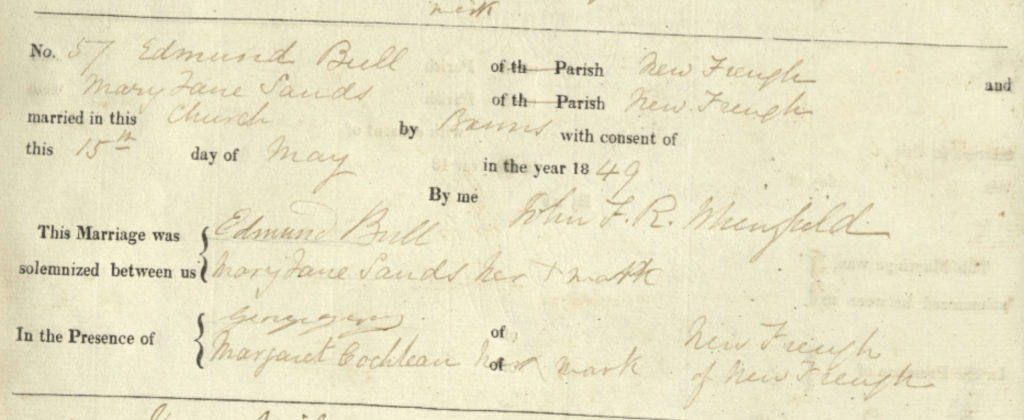 mark
No. 57 Edmund Bull of th Parish New Freugh and
Mary Jane Sands of th Parish New Freugh
married in this Church by Banns with consent of
this 15th day of May in the year 1849
By me John F. R.
This Marriage was Edmund Bull
solemnized between us Mary Jane Sands her X mark
In the Presence of of New Freugh
Margaret Cochlean her mark of of New Freugh